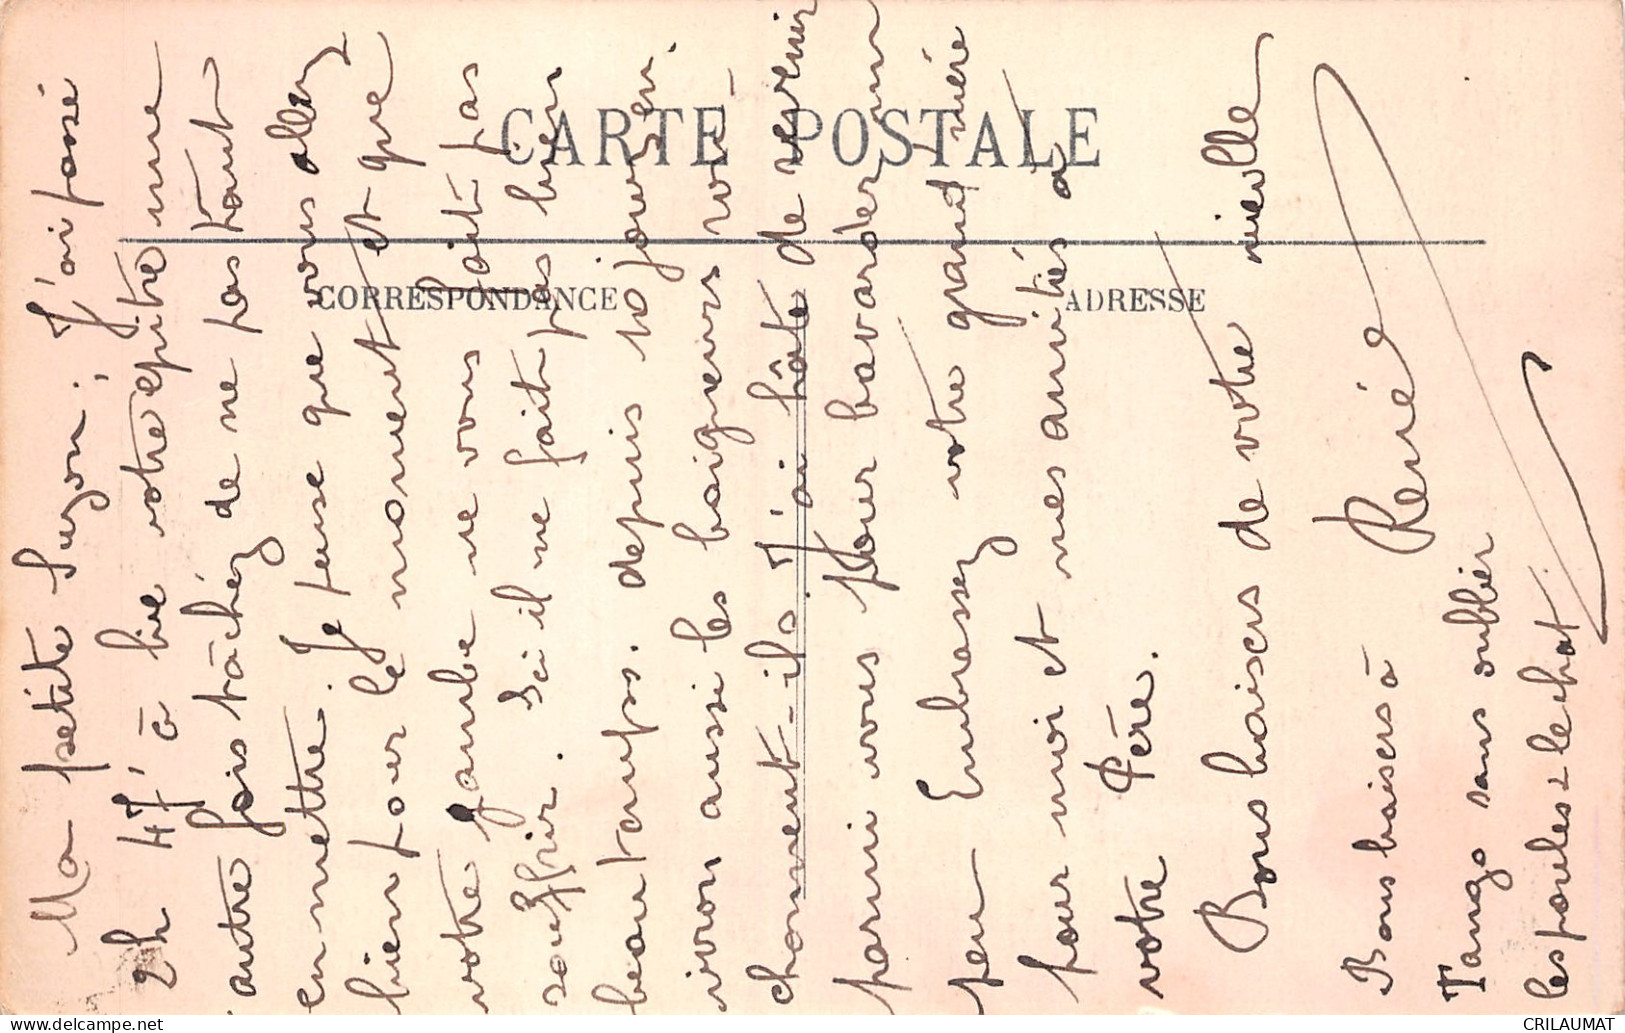 CARTE POSTALE
CORRESPONDANCE
ADRESSE
Ma petite Suzon : J'ai passé
2h 47' à lire votre epitre une
autre fois tâchez de ne pas tant
en mettre. Je pense que vous allez
bien pour le moment et que
votre jambe ne vous fait pas
souffrir. Ici il ne fait pas bien
beau temps. depuis 10 jours en-
viron aussi les baigneurs 
choment-ils. J'ai hâte de revenir
parmi vous pour bavarder un
peu Embrassez votre grand mère
pour moi et mes amitiés à
votre Père.
Bons baisers de votre vieille
Renée
Bons baisers à
Tango sans oublier
les poules & le chat.
CRILAUMAT